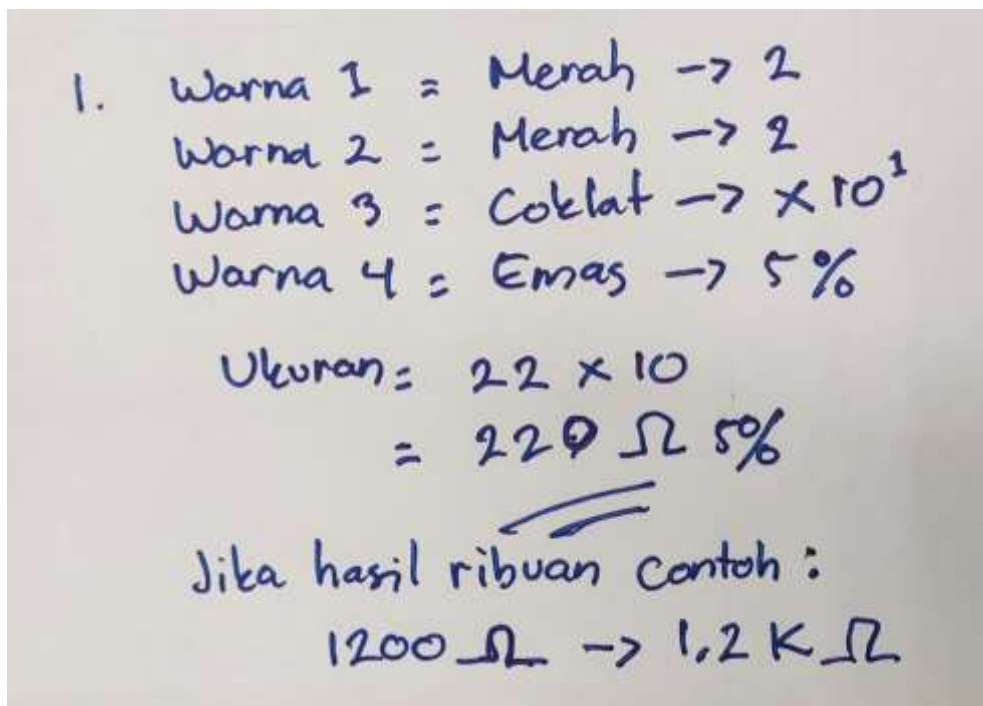 1. Warna 1 = Merah -> 2
Warna 2 = Merah -> 2
Warna 3 = Coklat -> x 10¹
Warna 4 = Emas -> 5%
Ukuran = 22 x 10
= 220 Ω 5%
Jika hasil ribuan contoh :
1200 Ω -> 1,2 K Ω